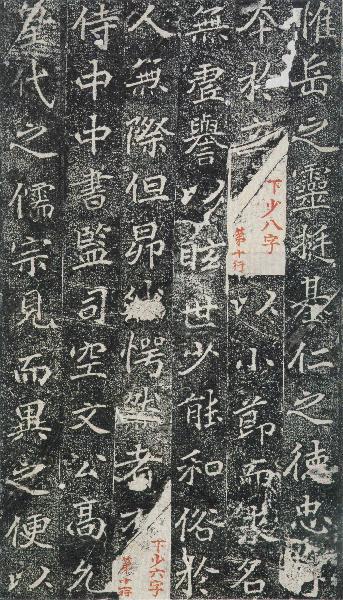 惟岳之靈挺基仁之德忠
本於
下少八字
第十行
以小節而名
無虛譽以眩世少能和俗於
人無際但昂愕然者
下少六字
侍中中書監司空文公高允
代之儒宗見而異之便以